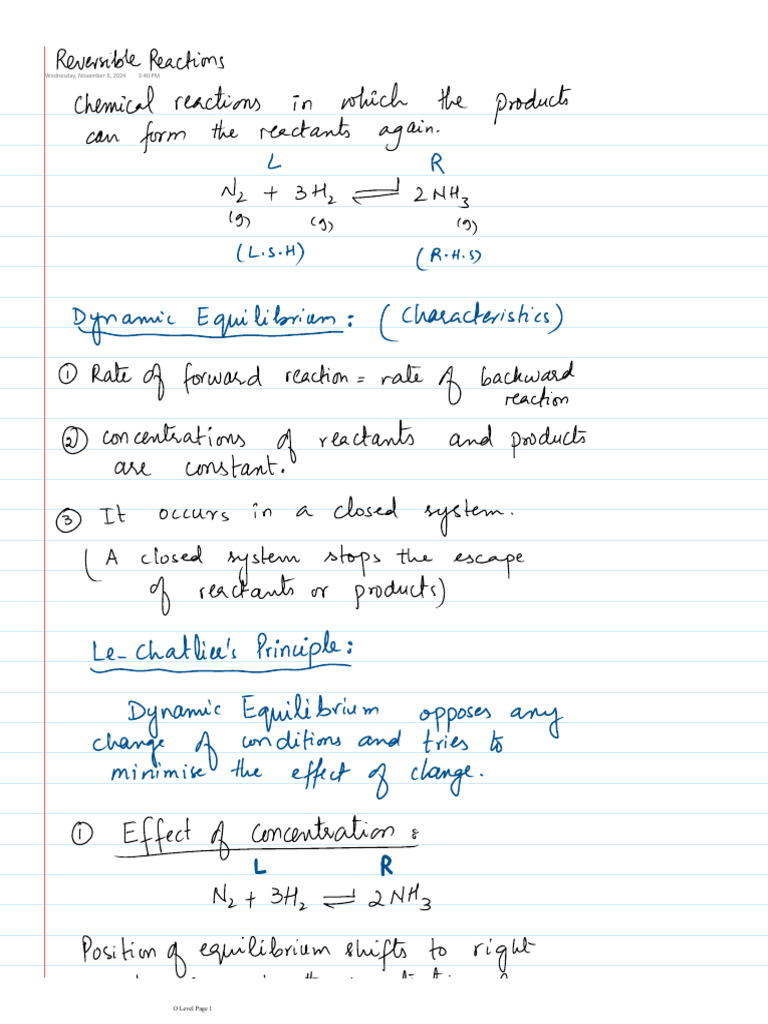 Reversible Reactions
Wednesday, November 6, 2024 3:40 PM
Chemical reactions in which the products
can form the reactants again.
L R
N₂ + 3H₂ ⇌ 2NH₃
(g) (g) (g)
(L.S.H) (R.H.S)
Dynamic Equilibrium: (Characteristics)
① Rate of forward reaction = rate of backward
reaction
② concentrations of reactants and products
are constant.
③ It occurs in a closed system.
(A closed system stops the escape
of reactants or products)
Le-Chatlier's Principle:
Dynamic Equilibrium opposes any
change of conditions and tries to
minimise the effect of change.
① Effect of concentration :
L R
N₂ + 3H₂ ⇌ 2NH₃
Position of equilibrium shifts to right
O Level Page 1